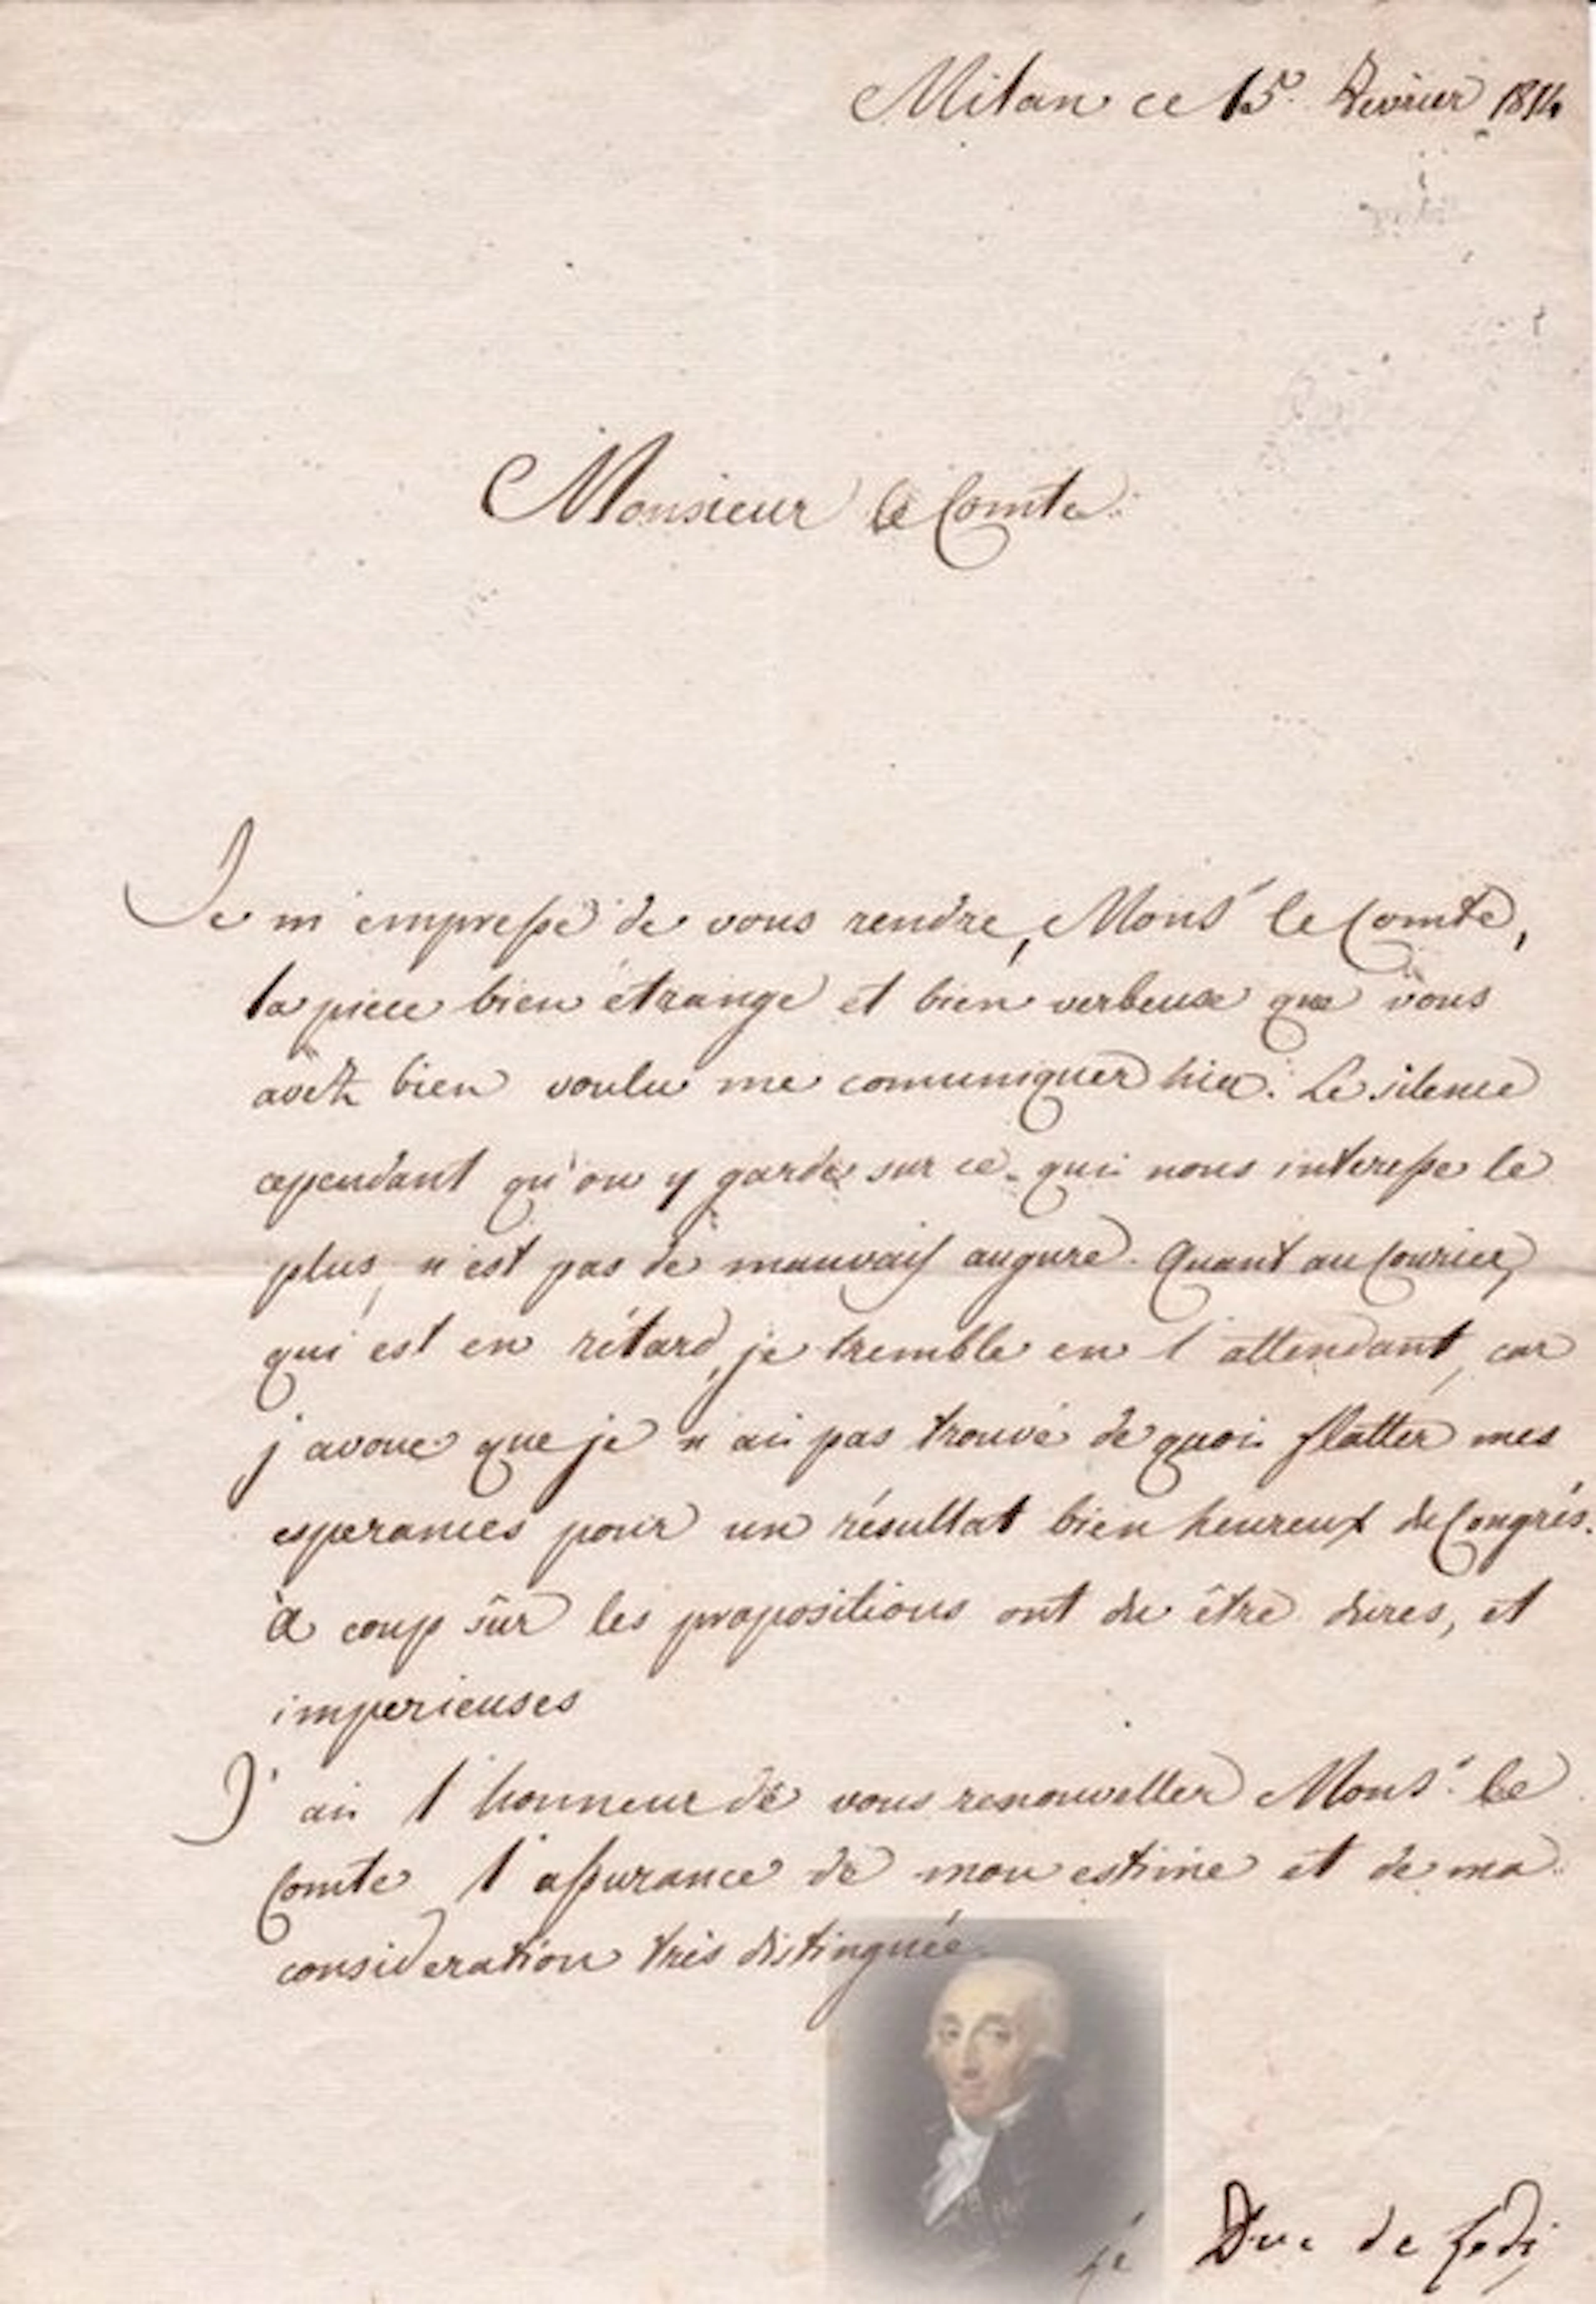 Milan ce 15. Fevrier 1814
Monsieur le Comte
Je m'empresse de vous rendre, Mons.r le Comte,
la piece bien étrange et bien verbeuse que vous
avez bien voulu me comuniquer hier. Le silence
cependant qu'on y garde sur ce qui nous interesse le
plus, n'est pas de mauvais augure. Quant au Courier,
qui est en rétard, je tremble en l'attendant, car
j'avoue que je n'ai pas trouvé de quoi flatter mes
esperances pour un résultat bien heureux de Congrés.
à coup sûr les propositions ont du être dures, et
imperieuses
J'ai l'honneur de vous renouveller Mons.r le
Comte l'assurance de mon estime et de ma
consideration très distinguée.
le Duc de Lodi